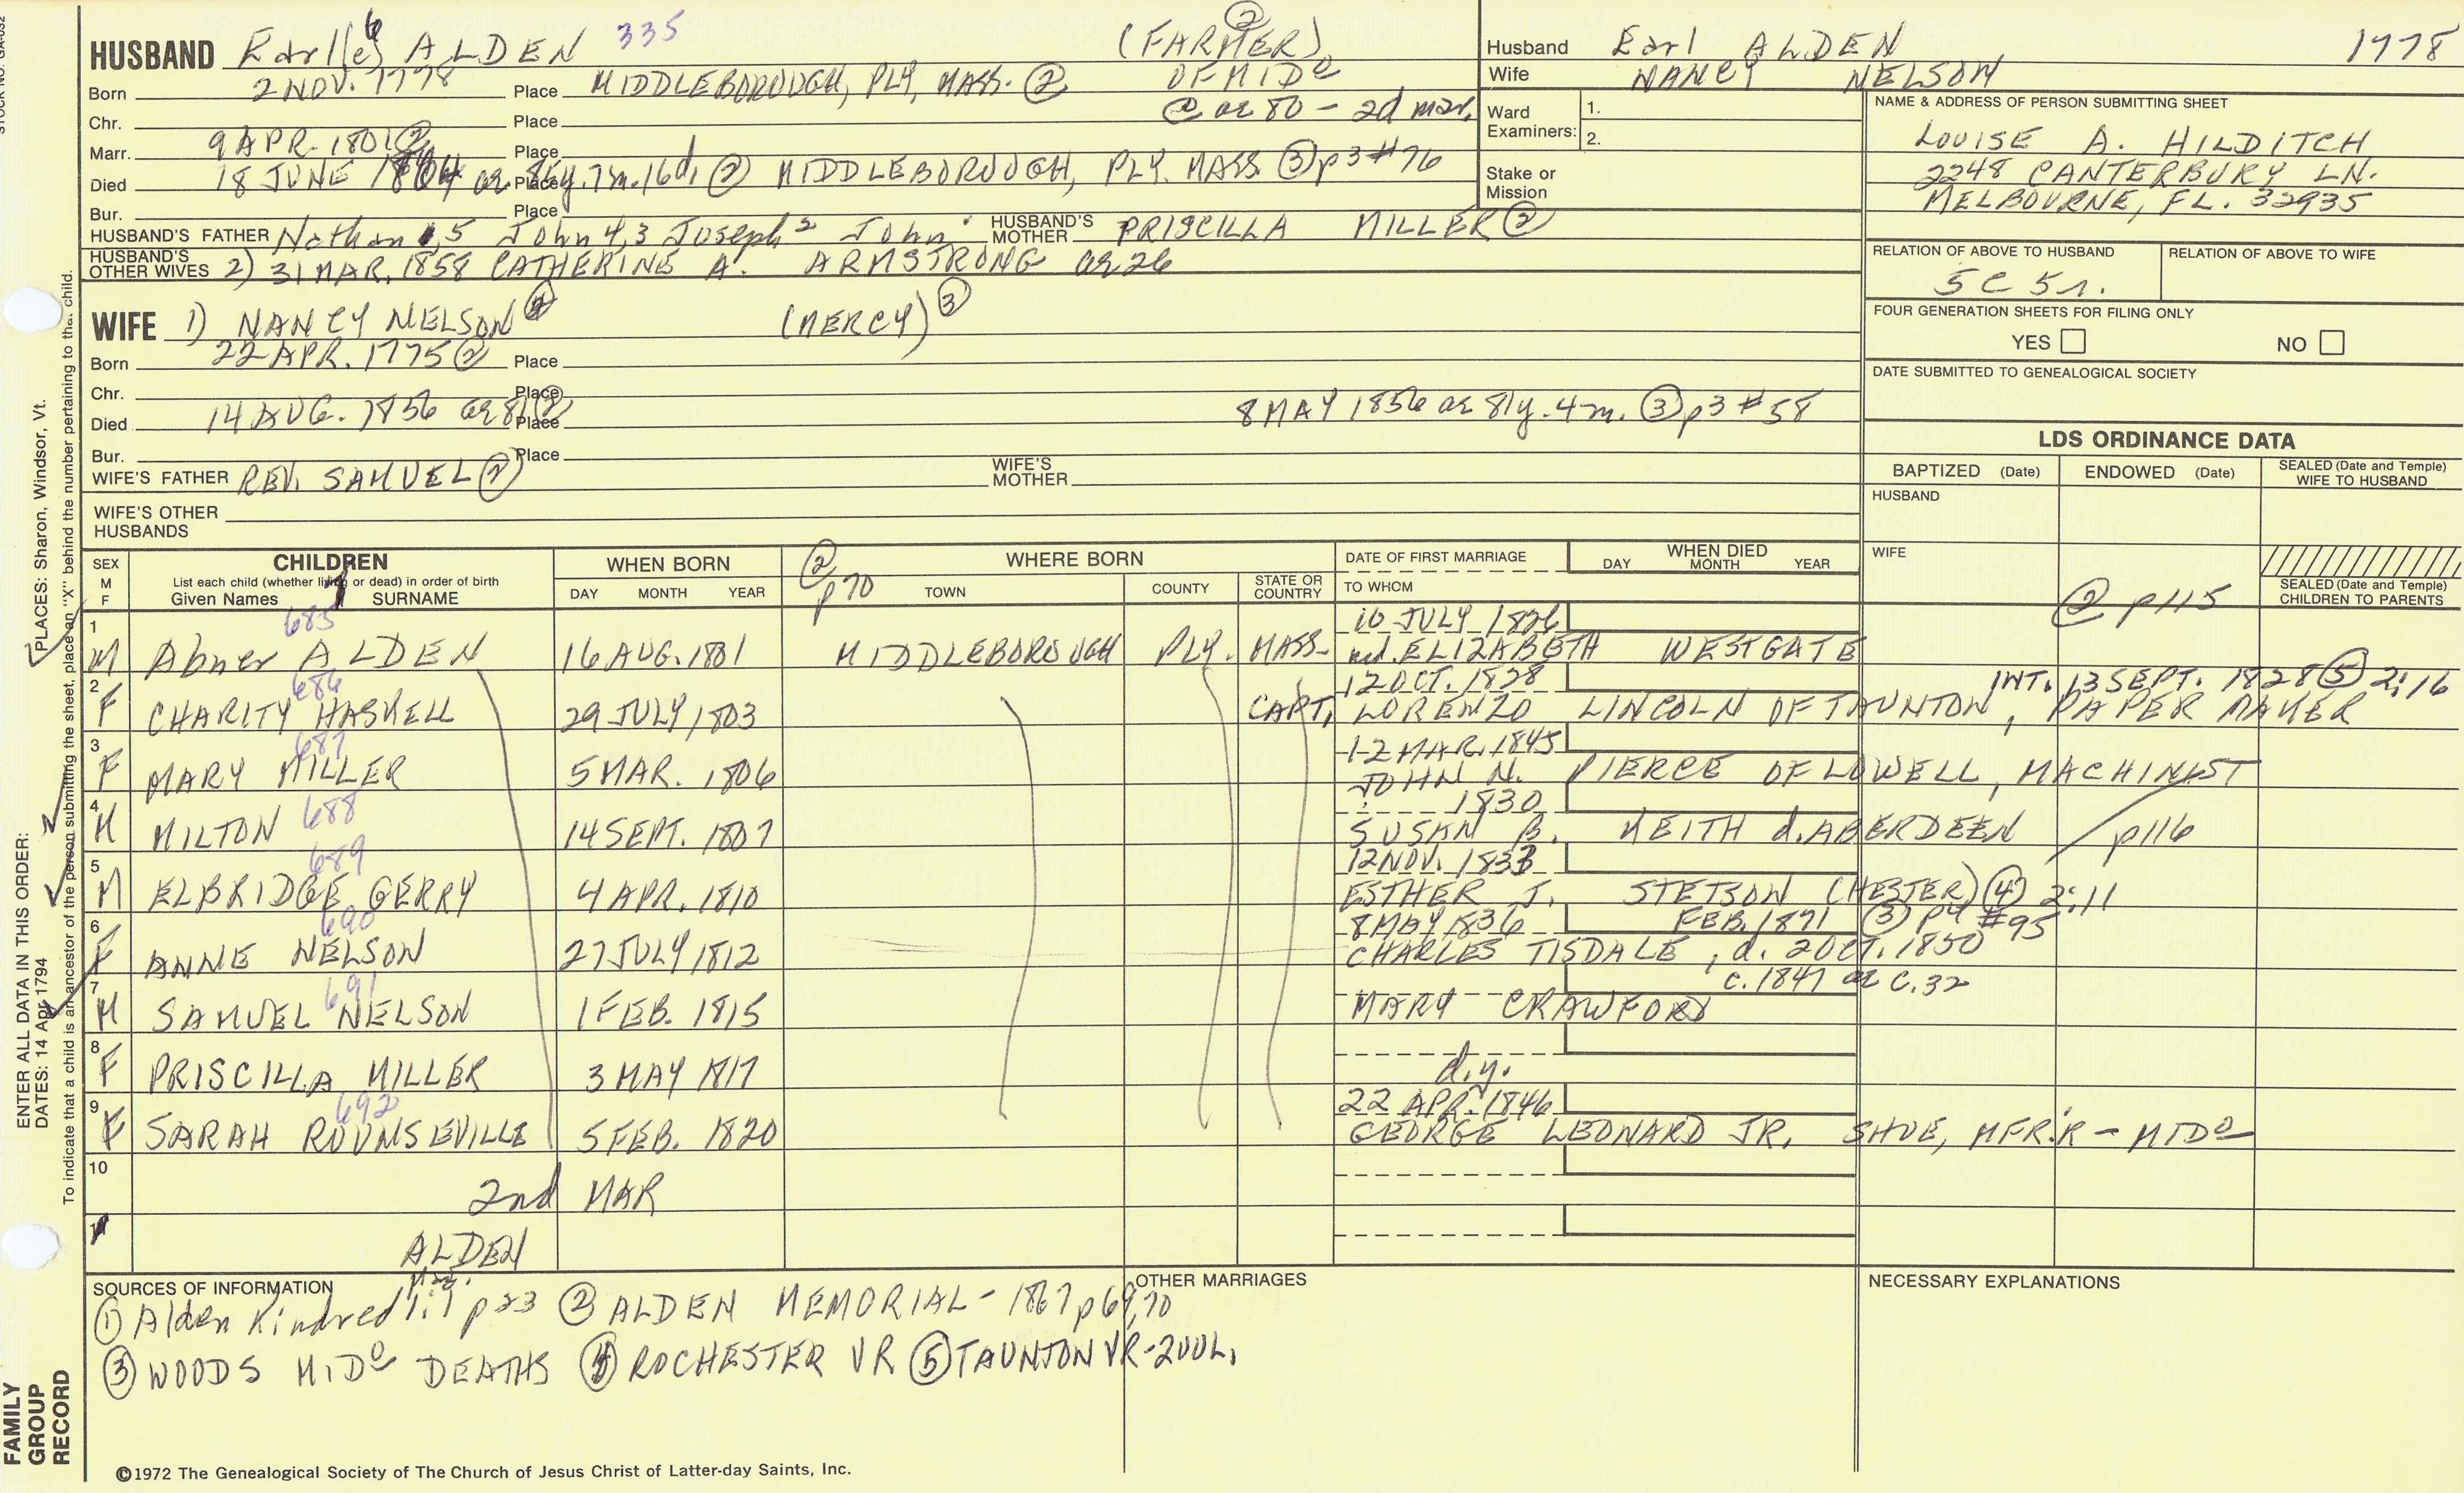 STOCK NO. GA-032
HUSBAND Earl(e) 6 ALDEN 335 (FARMER) ②
Born 2 NOV. 1778 Place MIDDLEBOROUGH, PLY, MASS. ② OF MIDo
Chr. Place ② ae 80 - 2d mar.
Marr. 9 APR. 1801 ② Place
Died 18 JUNE 1864 ae. 86y. 7m. 16d. ② Place MIDDLEBOROUGH, PLY. MASS ③ p3 #76
Bur. Place
HUSBAND'S FATHER Nathan 5 John 4,3 Joseph 2 John HUSBAND'S MOTHER PRISCILLA MILLER ②
HUSBAND'S OTHER WIVES 2) 31 MAR. 1858 CATHERINE A. ARMSTRONG ae 26
WIFE 1) NANCY NELSON (MERCY) ③
Born 22 APR. 1775 ② Place
Chr. Place
Died 14 AUG. 1856 ae 81 ② Place 8 MAY 1856 ae 81y. 4m. ③ p3 #58
Bur. Place
WIFE'S FATHER REV. SAMUEL ② WIFE'S MOTHER
WIFE'S OTHER HUSBANDS
Husband Earl ALDEN 1778
Wife NANCY NELSON
Ward Examiners: 1.
2.
Stake or Mission
NAME & ADDRESS OF PERSON SUBMITTING SHEET
LOUISE A. HILDITCH
2248 CANTERBURY LN.
MELBOURNE, FL. 32935
RELATION OF ABOVE TO HUSBAND RELATION OF ABOVE TO WIFE
5C 5r.
FOUR GENERATION SHEETS FOR FILING ONLY
YES NO
DATE SUBMITTED TO GENEALOGICAL SOCIETY
LDS ORDINANCE DATA
BAPTIZED (Date) ENDOWED (Date) SEALED (Date and Temple) WIFE TO HUSBAND
HUSBAND
WIFE
SEALED (Date and Temple) CHILDREN TO PARENTS
② p115
SEX M F CHILDREN List each child (whether living or dead) in order of birth Given Names SURNAME 7
WHEN BORN DAY MONTH YEAR
② p70 WHERE BORN TOWN COUNTY STATE OR COUNTRY
DATE OF FIRST MARRIAGE TO WHOM
WHEN DIED DAY MONTH YEAR
685 10 JULY 1826
1 M Abner ALDEN 16 AUG. 1801 MIDDLEBOROUGH PLY. MASS. ELIZABETH WESTGATE
686 12 OCT. 1828 INT. 13 SEPT. 1828 ⑤ 2:16
2 F CHARITY HASKELL 29 JULY 1803 CAPT. LORENZO LINCOLN OF TAUNTON, PAPER MAKER
687 12 MAR. 1845
3 F MARY MILLER 5 MAR. 1806 JOHN N. PIERCE OF LOWELL, MACHINIST
688 1830
4 M MILTON 14 SEPT. 1807 SUSAN B. KEITH d. ABERDEEN p116
689 12 NOV. 1833
5 M ELBRIDGE GERRY 4 APR. 1810 ESTHER J. STETSON (HESTER) ④ 2:11
690 8 MAY 1836 FEB. 1871 ③ p4 #95
6 F ANNE NELSON 27 JULY 1812 CHARLES TISDALE, d. 2 OCT. 1850
691 c. 1847 ae c. 32
7 M SAMUEL NELSON 1 FEB. 1815 MARY CRAWFORD
8 F PRISCILLA MILLER 3 MAY 1817 d.y.
692 22 APR. 1846
9 F SARAH ROUNSEVILLE 5 FEB. 1820 GEORGE LEONARD JR. SHOE, MFR. R - MIDo
10 2nd MAR
ALDEN
SOURCES OF INFORMATION
① Alden Kindred Mag. 1:1 p23 ② ALDEN MEMORIAL - 1867 p69,70
③ WOODS MIDo DEATHS ④ ROCHESTER VR ⑤ TAUNTON VR-2VOL.
OTHER MARRIAGES
NECESSARY EXPLANATIONS
©1972 The Genealogical Society of The Church of Jesus Christ of Latter-day Saints, Inc.
FAMILY GROUP RECORD
ENTER ALL DATA IN THIS ORDER:
DATES: 14 Apr 1794
PLACES: Sharon, Windsor, Vt.
To indicate that a child is an ancestor of the person submitting the sheet, place an "X" behind the number pertaining to that child.